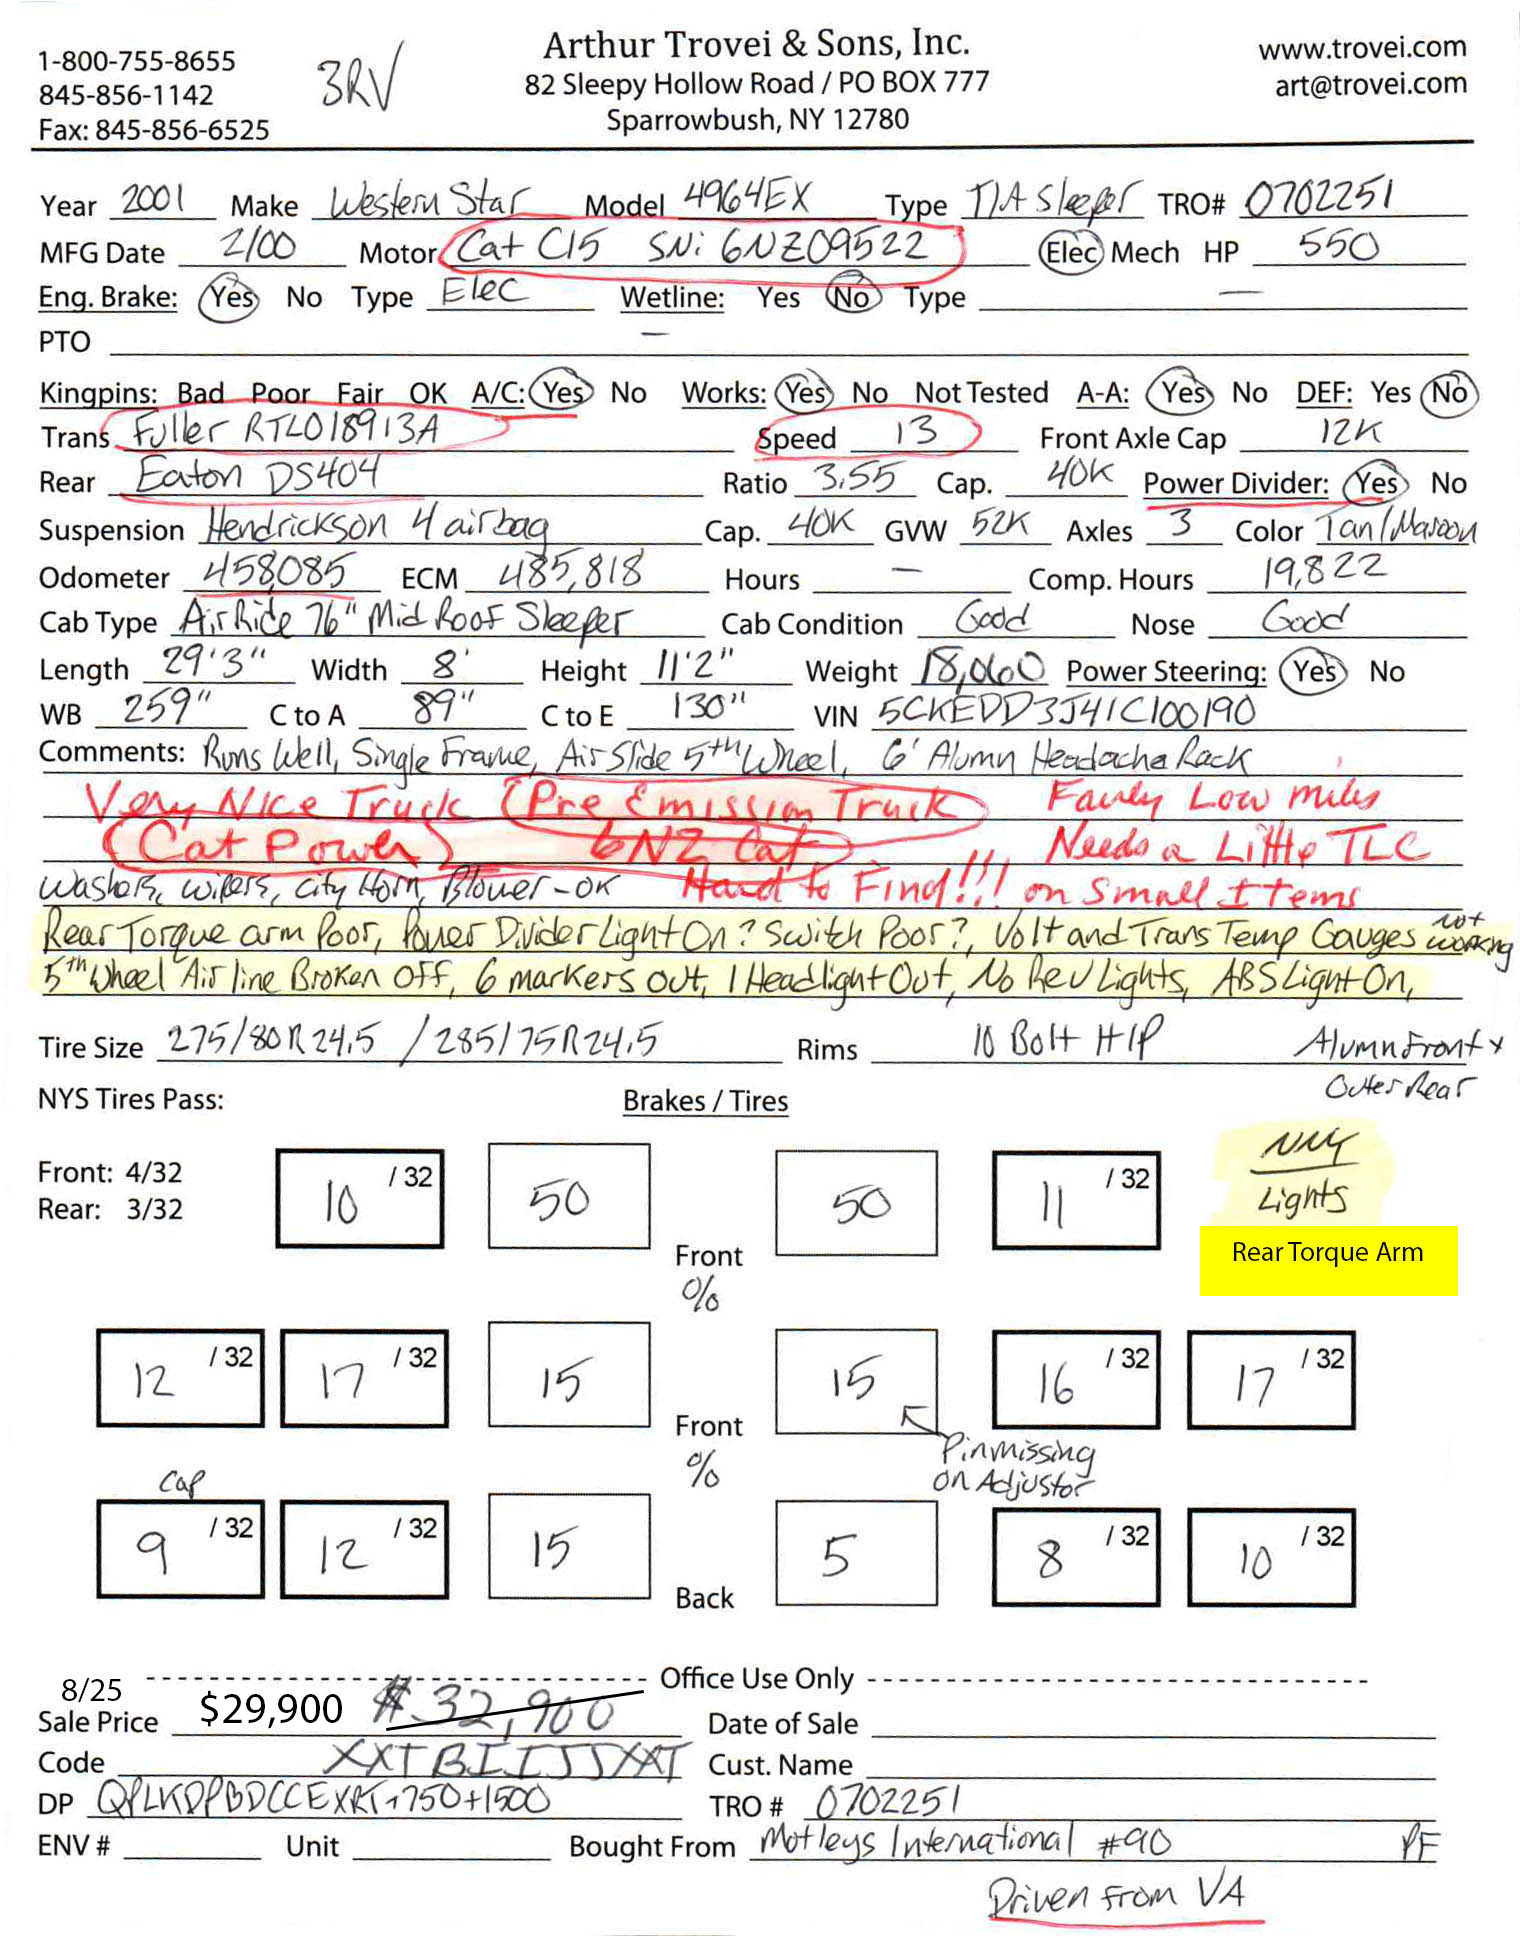 Arthur Trovei & Sons, Inc.
1-800-755-8655
845-856-1142
Fax: 845-856-6525
3RV
82 Sleepy Hollow Road / PO BOX 777
Sparrowbush, NY 12780
www.trovei.com
art@trovei.com
Year 2001 Make Western Star Model 4964EX Type T/A Sleeper TRO# 0702251
MFG Date 2/00 Motor Cat C15 SN: 6NZ09522 Elec Mech HP 550
Eng. Brake: Yes No Type Elec Wetline: Yes No Type —
PTO —
Kingpins: Bad Poor Fair OK A/C: Yes No Works: Yes No Not Tested A-A: Yes No DEF: Yes No
Trans Fuller RTLO18913A Speed 13 Front Axle Cap 12K
Rear Eaton DS404 Ratio 3.55 Cap. 40K Power Divider: Yes No
Suspension Hendrickson 4 airbag Cap. 40K GVW 52K Axles 3 Color Tan/Maroon
Odometer 458,085 ECM 485,818 Hours — Comp. Hours 19,822
Cab Type Air Ride 76" Mid Roof Sleeper Cab Condition Good Nose Good
Length 29'3" Width 8' Height 11'2" Weight 18,060 Power Steering: Yes No
WB 259" C to A 89" C to E 130" VIN 5CKEDD3J41C100190
Comments: Runs Well, Single Frame, Air Slide 5th Wheel, 6' Alumn Headache Rack
Very Nice Truck Pre Emission Truck Fairly Low miles
Cat Power 6NZ Cat Needs a Little TLC
Washers, wipers, City Horn, Blower-OK Hard to Find!!! on Small Items
Rear Torque arm Poor, Power Divider Light On? Switch Poor?, Volt and Trans Temp Gauges not working
5th Wheel Air line Broken Off, 6 markers out, 1 Headlight Out, No Rev Lights, ABS Light On,
Tire Size 275/80R24.5 / 285/75R24.5 Rims 10 Bolt H/P Alumn Front +
Outer Rear
NYS Tires Pass: Brakes / Tires
Front: 4/32
Rear: 3/32
10 /32 50 50 11 /32
Front
%
Lights
Rear Torque Arm
12 /32 17 /32 15 15 16 /32 17 /32
Front
%
Pin missing
on Adjustor
Cap
9 /32 12 /32 15 5 8 /32 10 /32
Back
Office Use Only
8/25
Sale Price $29,900 $32,900 Date of Sale
Code XXTBIIJJXAT Cust. Name
DP QPLKDPBDCCEXRT+750+1500 TRO # 0702251
ENV # Unit Bought From Motleys International #90 PF
Driven from VA